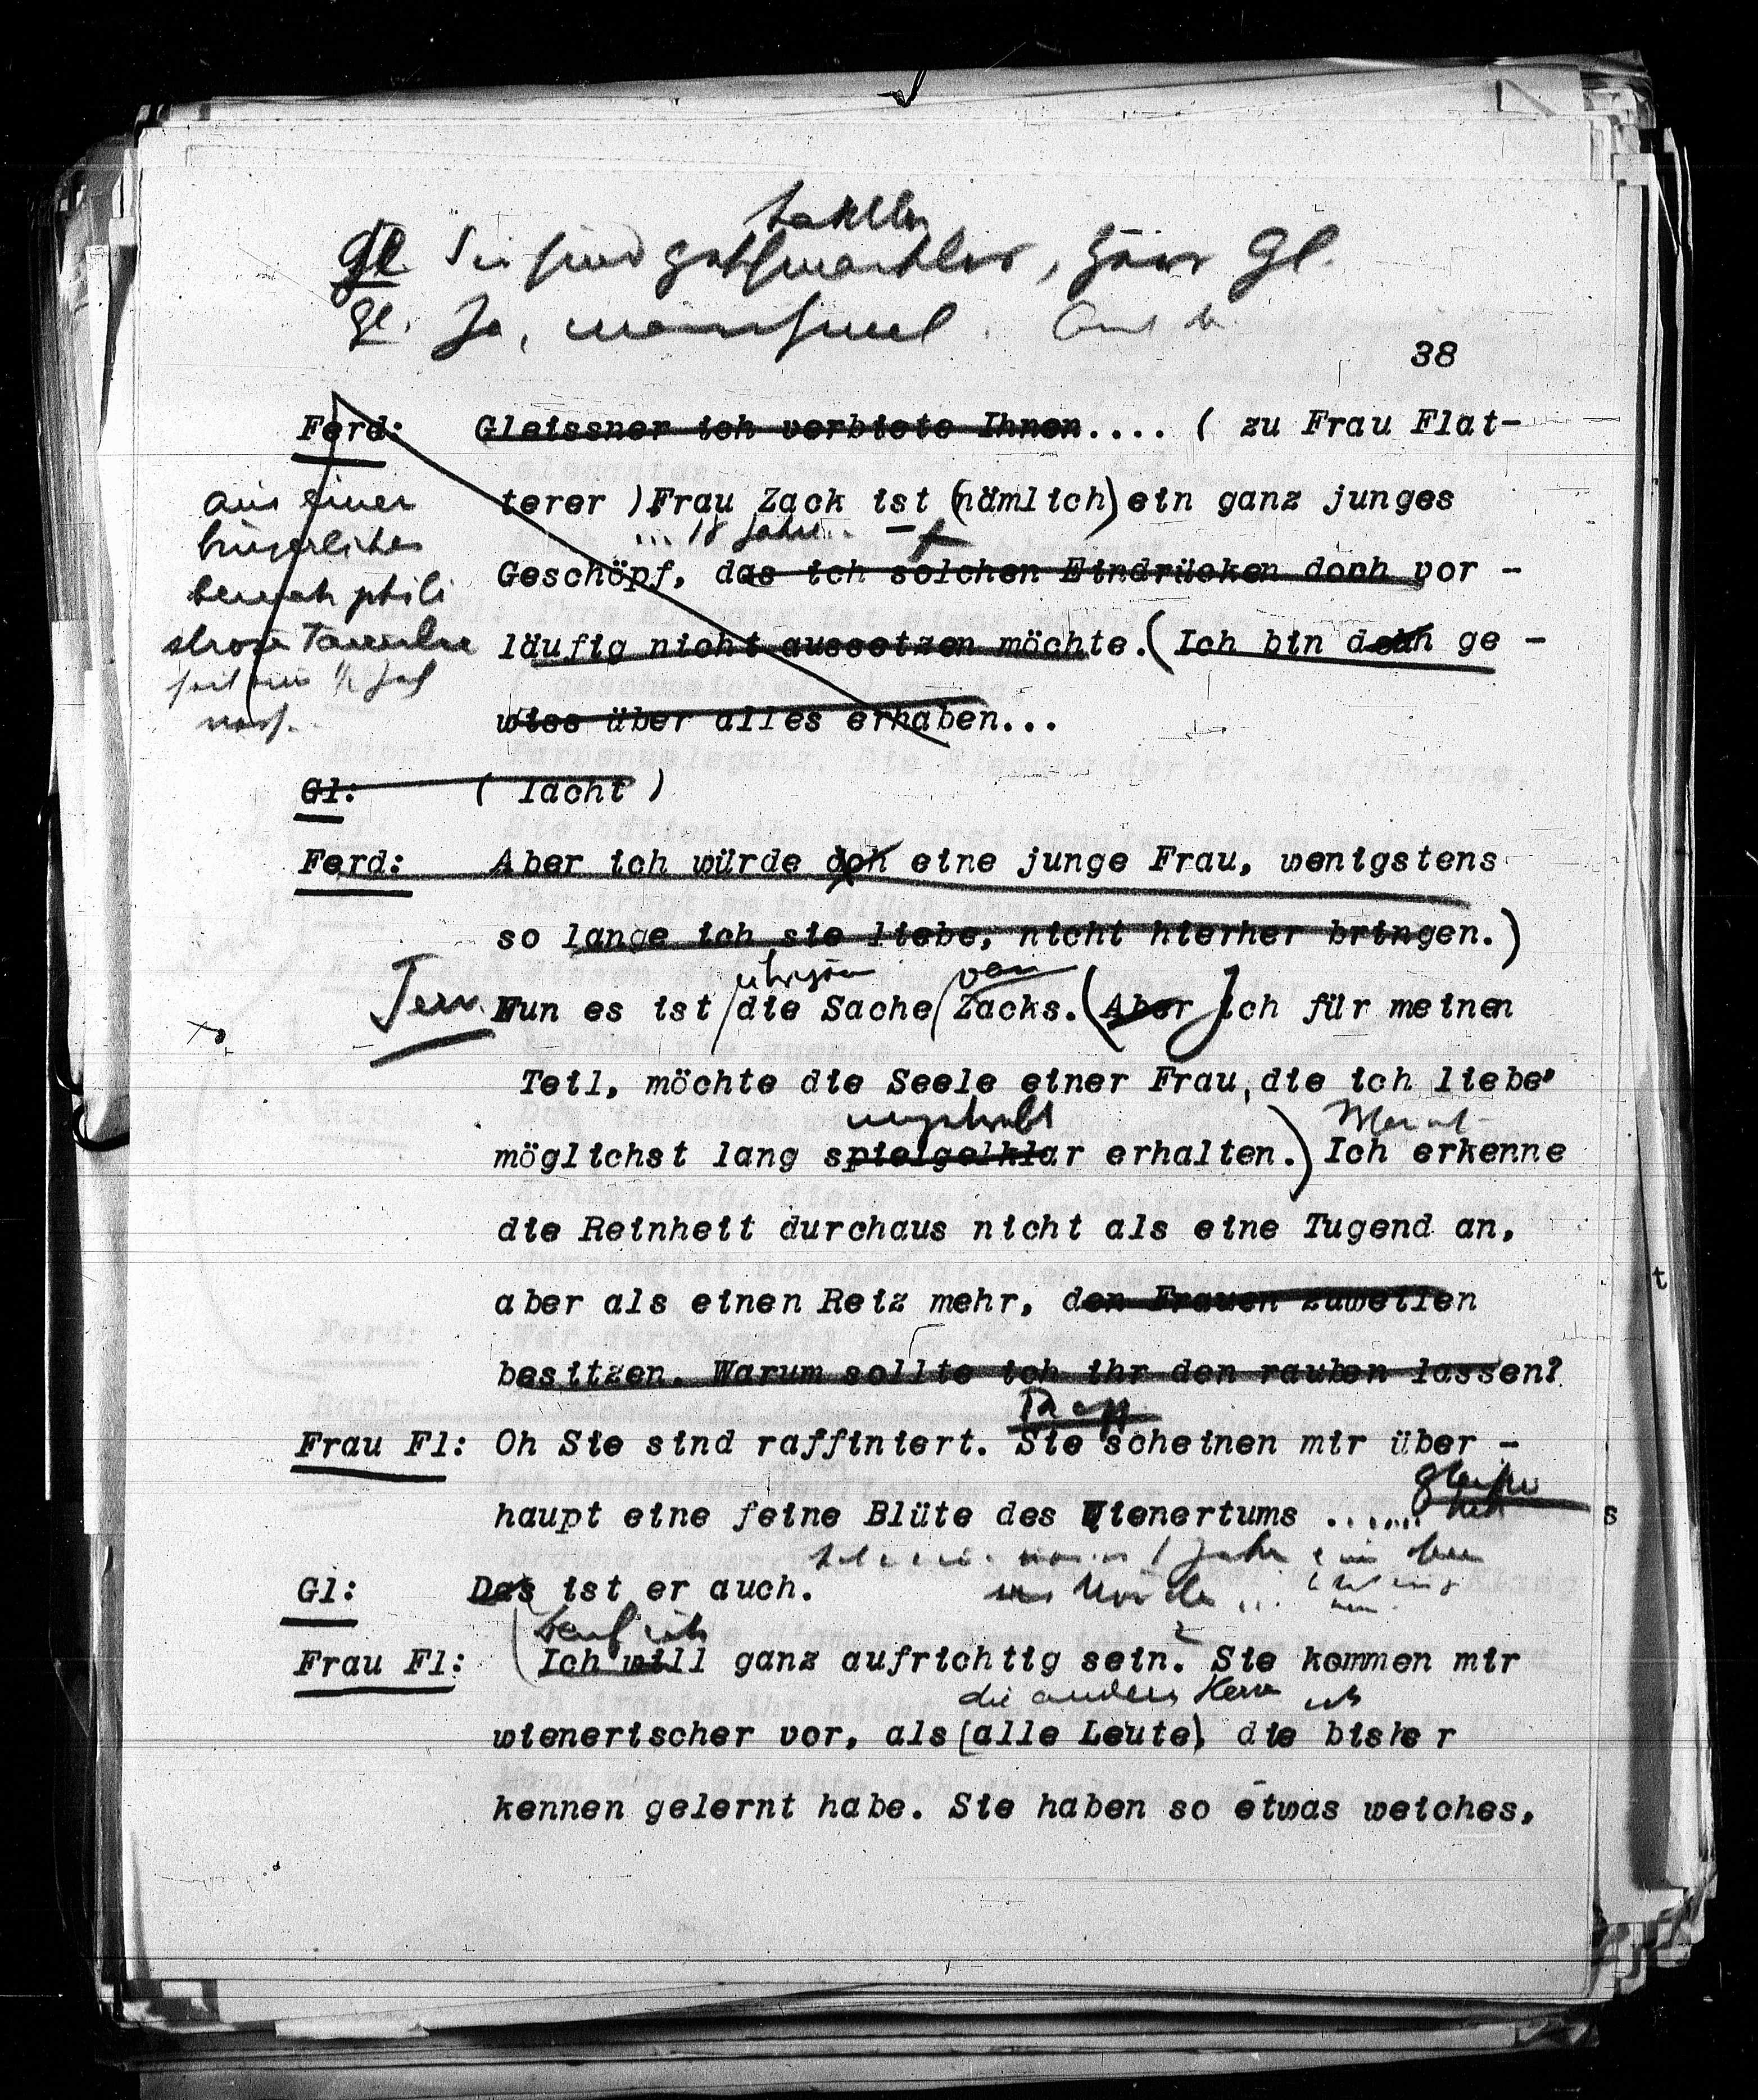 Gl Sie sind geschmacklos, Herr Gl.
Gl. Ja, manchmal.
38
Ferd: Gleissner ich verbiete Ihnen.... ( zu Frau Flat-
aus einer
bürgerlichen
beinah phili
strosen Familie
terer ) Frau Zack ist (nämlich) ein ganz junges
... 18 Jahre..
Geschöpf, das ich solchen Eindrücken doch vor -
läufig nicht aussetzen möchte. (Ich bin doch ge -
wiss über alles erhaben...
Gl: ( lacht )
Ferd: Aber ich würde doch eine junge Frau, wenigstens
so lange ich sie liebe, nicht hierher bringen.)
übrigens von
Nun es ist die Sache Zacks. (Aber Ich für meinen
Teil, möchte die Seele einer Frau, die ich liebe
ungetrübt
möglichst lang spielgelklar erhalten.) Ich erkenne
die Reinheit durchaus nicht als eine Tugend an,
aber als einen Reiz mehr, den Frauen zuweilen
besitzen. Warum sollte ich ihr den rauben lassen?
Frau Fl: Oh Sie sind raffiniert. Sie scheinen mir über -
haupt eine feine Blüte des Wienertums ......
Gl: Das ist er auch.
Darf ich
Frau Fl: (Ich will ganz aufrichtig sein. Sie kommen mir
die andern Herrn ich
wienerischer vor, als (alle Leute) die bisher
kennen gelernt habe. Sie haben so etwas weiches,